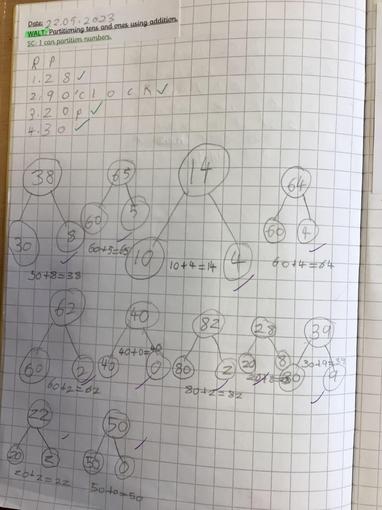 Date: 22.09.2023
WALT: Partitioning tens and ones using addition.
SC: I can partition numbers.
R P
1. 28 ✓
2. 9 O'clock ✓
3. 20p ✓
4. 30 ✓
38 65 14 64
30 8 60 5 10 4 60 4
30+8=38 60+5=65 10+4=14 60+4=64
62 40 82 28 39
60 2 40 0 80 2 20 8 30 9
60+2=62 40+0=40 80+2=82 20+8=28 30+9=39
22 50
20 2 50 0
20+2=22 50+0=50